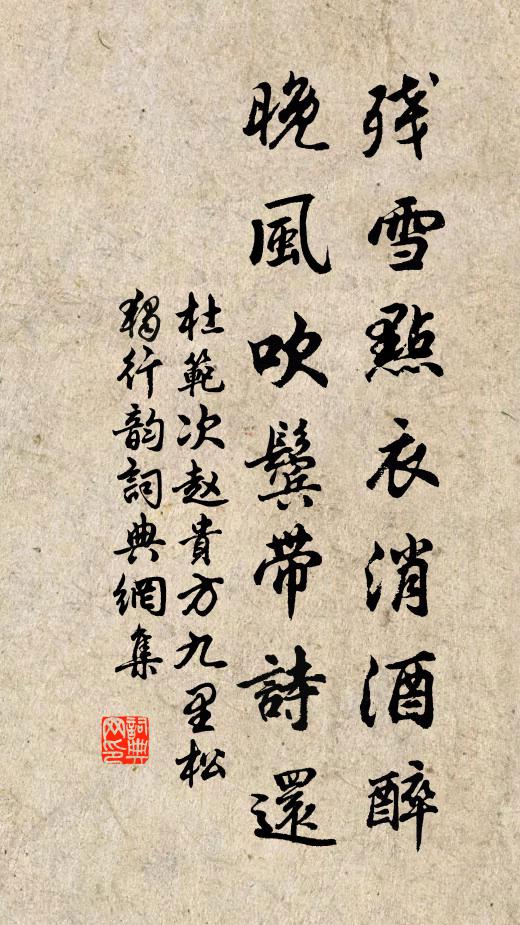 残雪點衣消酒醉
晚風吹鬓带詩還
杜範次赵貴方九里松
獨行韵詞典網集
詞典网印